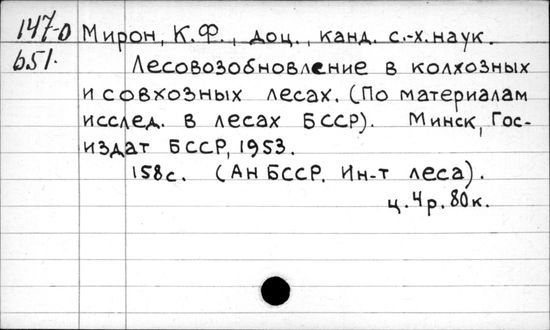 147-0 Мирон, К.Ф., доц., канд. с.-х. наук.
651. Лесовозобновление в колхозных
и совхозных лесах. (По материалам
исслед. в лесах БССР). Минск, Гос-
издат БССР, 1953.
158с. (АН БССР. Ин-т леса).
ц. 4р. 80к.